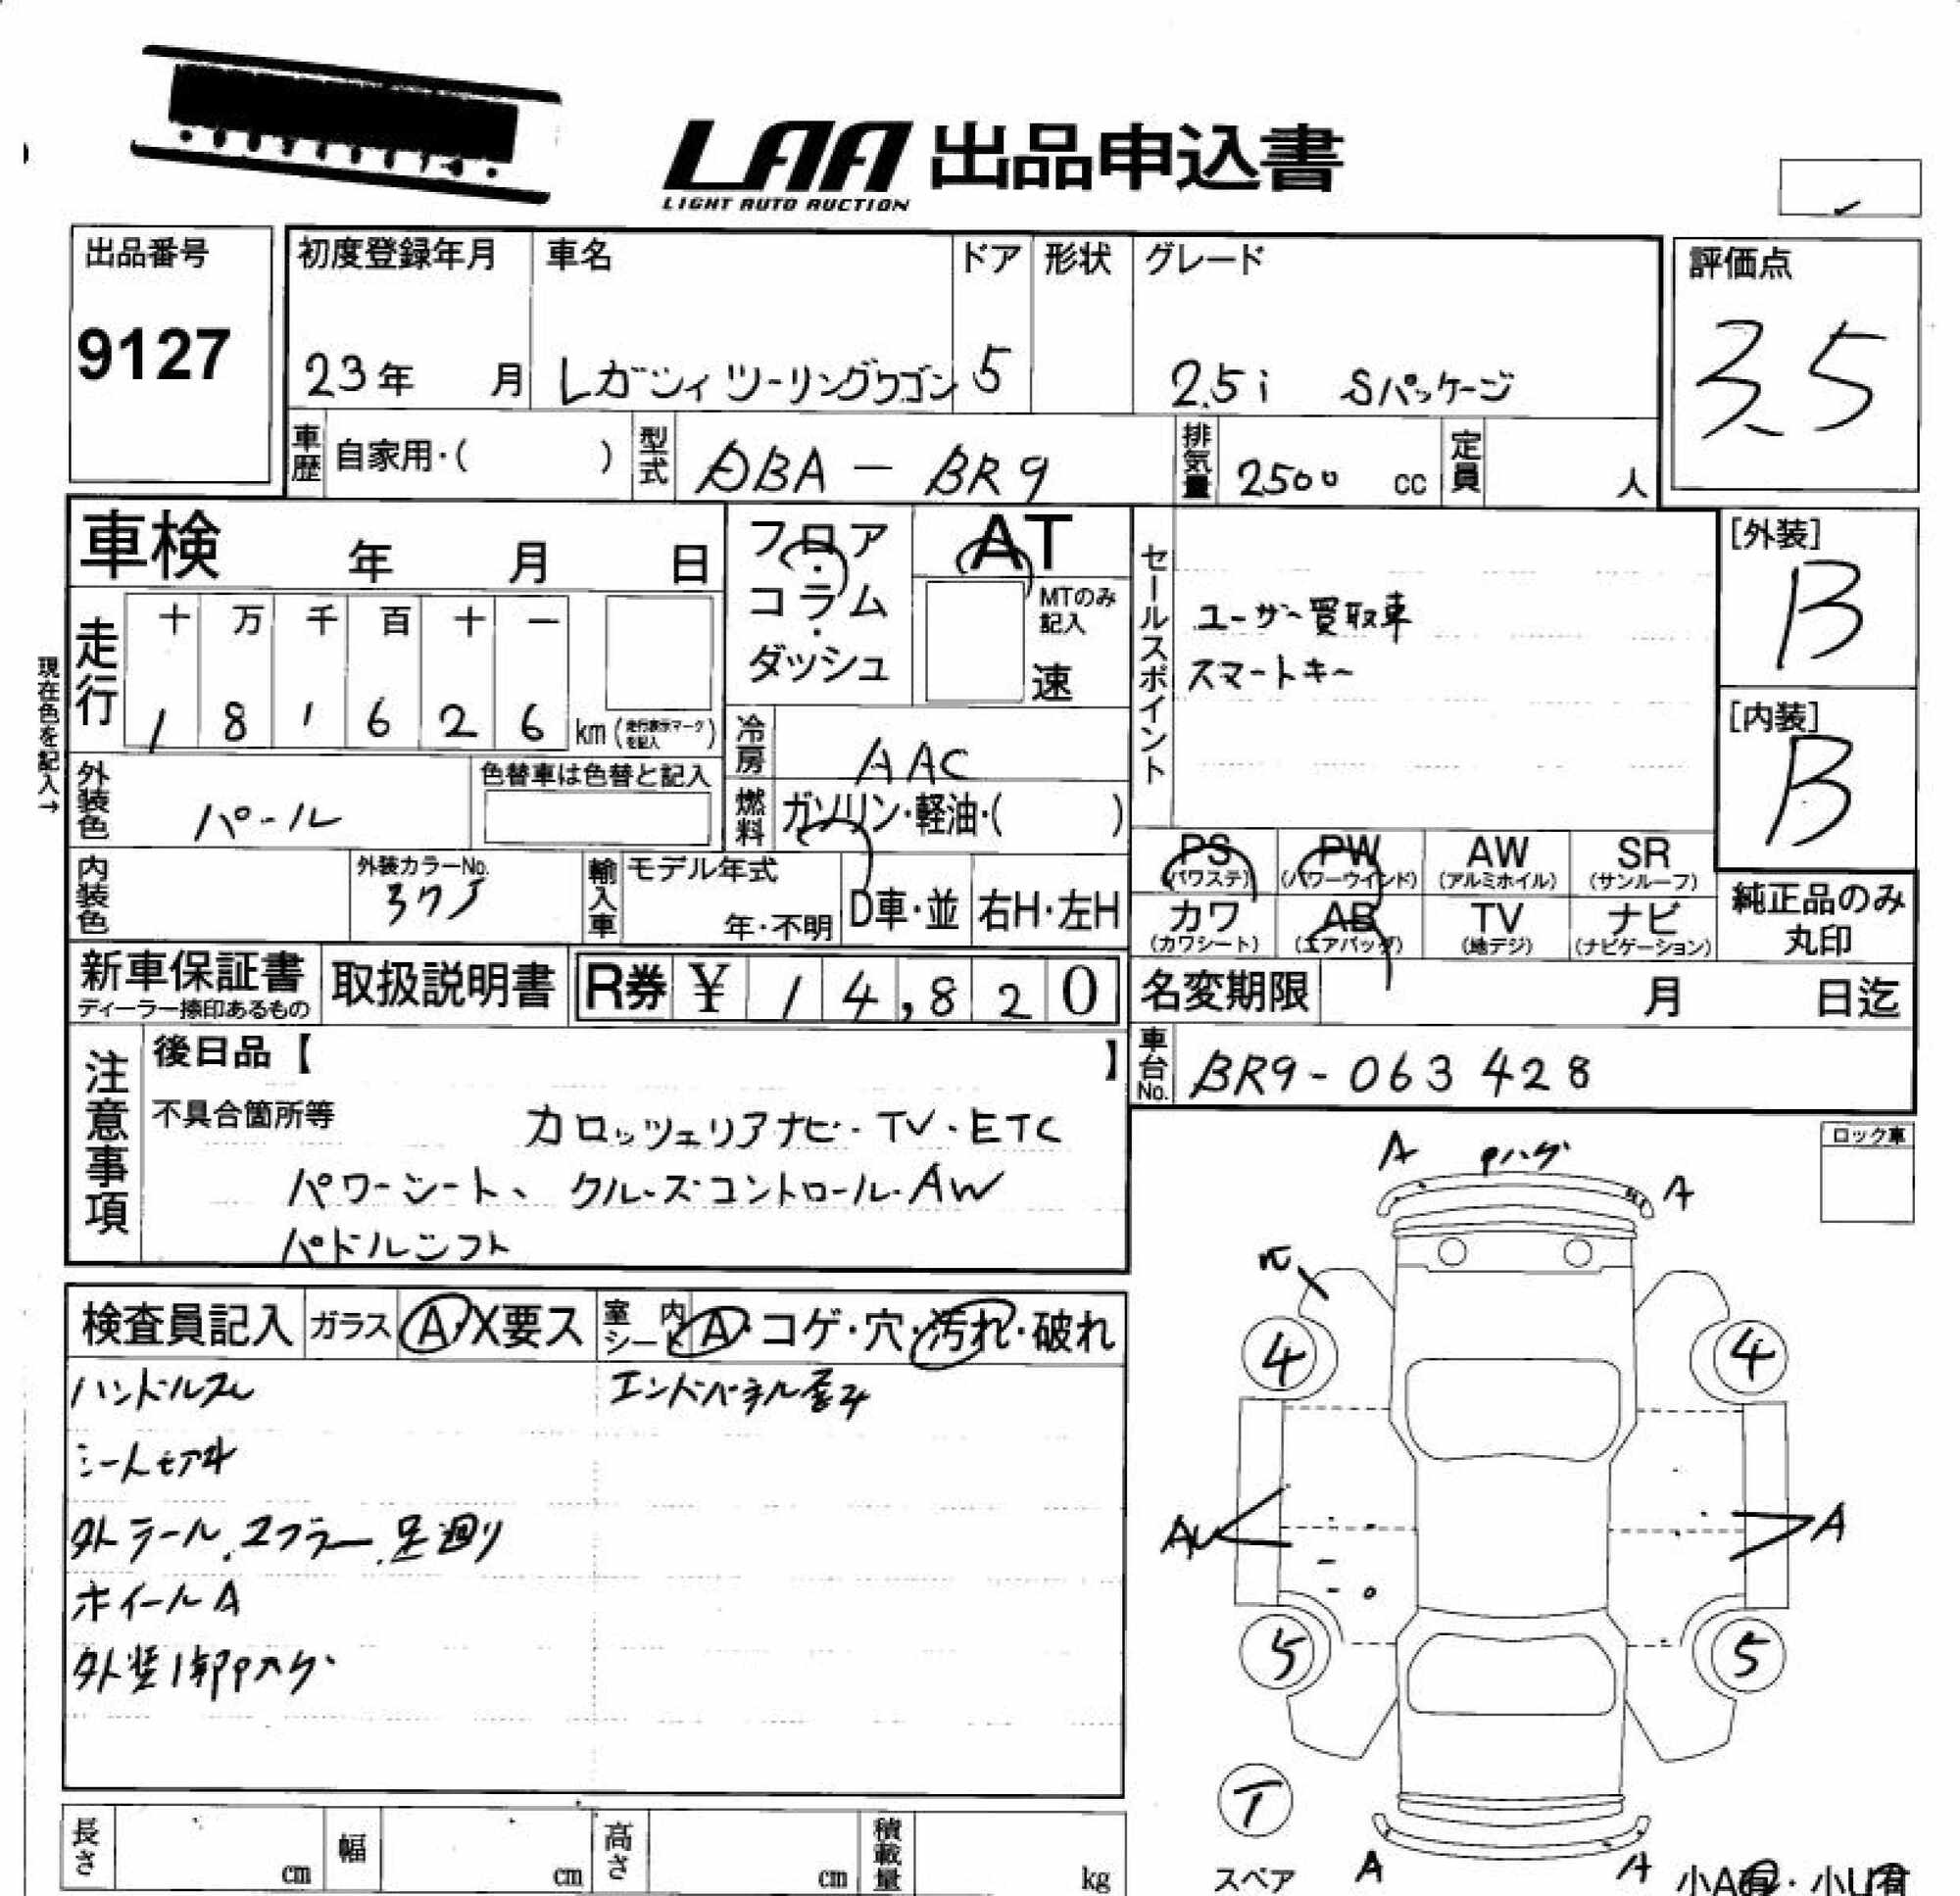 LAA 出品申込書
LIGHT AUTO AUCTION
出品番号
9127
初度登録年月
23年 月
車名
レガシィ ツーリングワゴン
ドア
5
形状
グレード
2.5i Sパッケージ
評価点
3.5
車歴 自家用・( )
型式 DBA - BR9
排気量 2500 cc
定員 人
車検 年 月 日
フロア・コラム・ダッシュ
AT
MTのみ記入
速
セールスポイント
ユーザー買取車
スマートキー
[外装]
B
[内装]
B
現在色を記入→
走行 十 万 千 百 十 一
1 8 1 6 2 6 km (走行表示マークを記入)
冷房 AAC
外装色 パール
色替車は色替と記入
燃料 ガソリン・軽油・( )
内装色
外装カラーNo.
37J
輸入車 モデル年式
年・不明
D車・並 右H・左H
PS (パワステ)
PW (パワーウインド)
AW (アルミホイル)
SR (サンルーフ)
カワ (カワシート)
AB (エアバッグ)
TV (地デジ)
ナビ (ナビゲーション)
純正品のみ丸印
新車保証書
ディーラー捺印あるもの
取扱説明書
R券 ¥ 14,820
名変期限 月 日迄
車台No. BR9-063428
注意事項
後日品【 】
不具合箇所等
カロッツェリアナビ・TV・ETC
パワーシート、クルーズコントロール・AW
パドルシフト
ロック車
検査員記入 ガラス A・X要ス 室内シート A・コゲ・穴・汚れ・破れ
ハンドルスレ
エンドパネル歪み
外テール.マフラー.足廻り
ホイールA
外装1部Pハゲ
A Pハゲ A
4 4
A
5 5
T
スペア
A A
長さ cm
幅 cm
高さ cm
積載量 kg